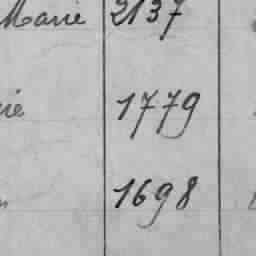 Marie 2137
rie 1779
1698